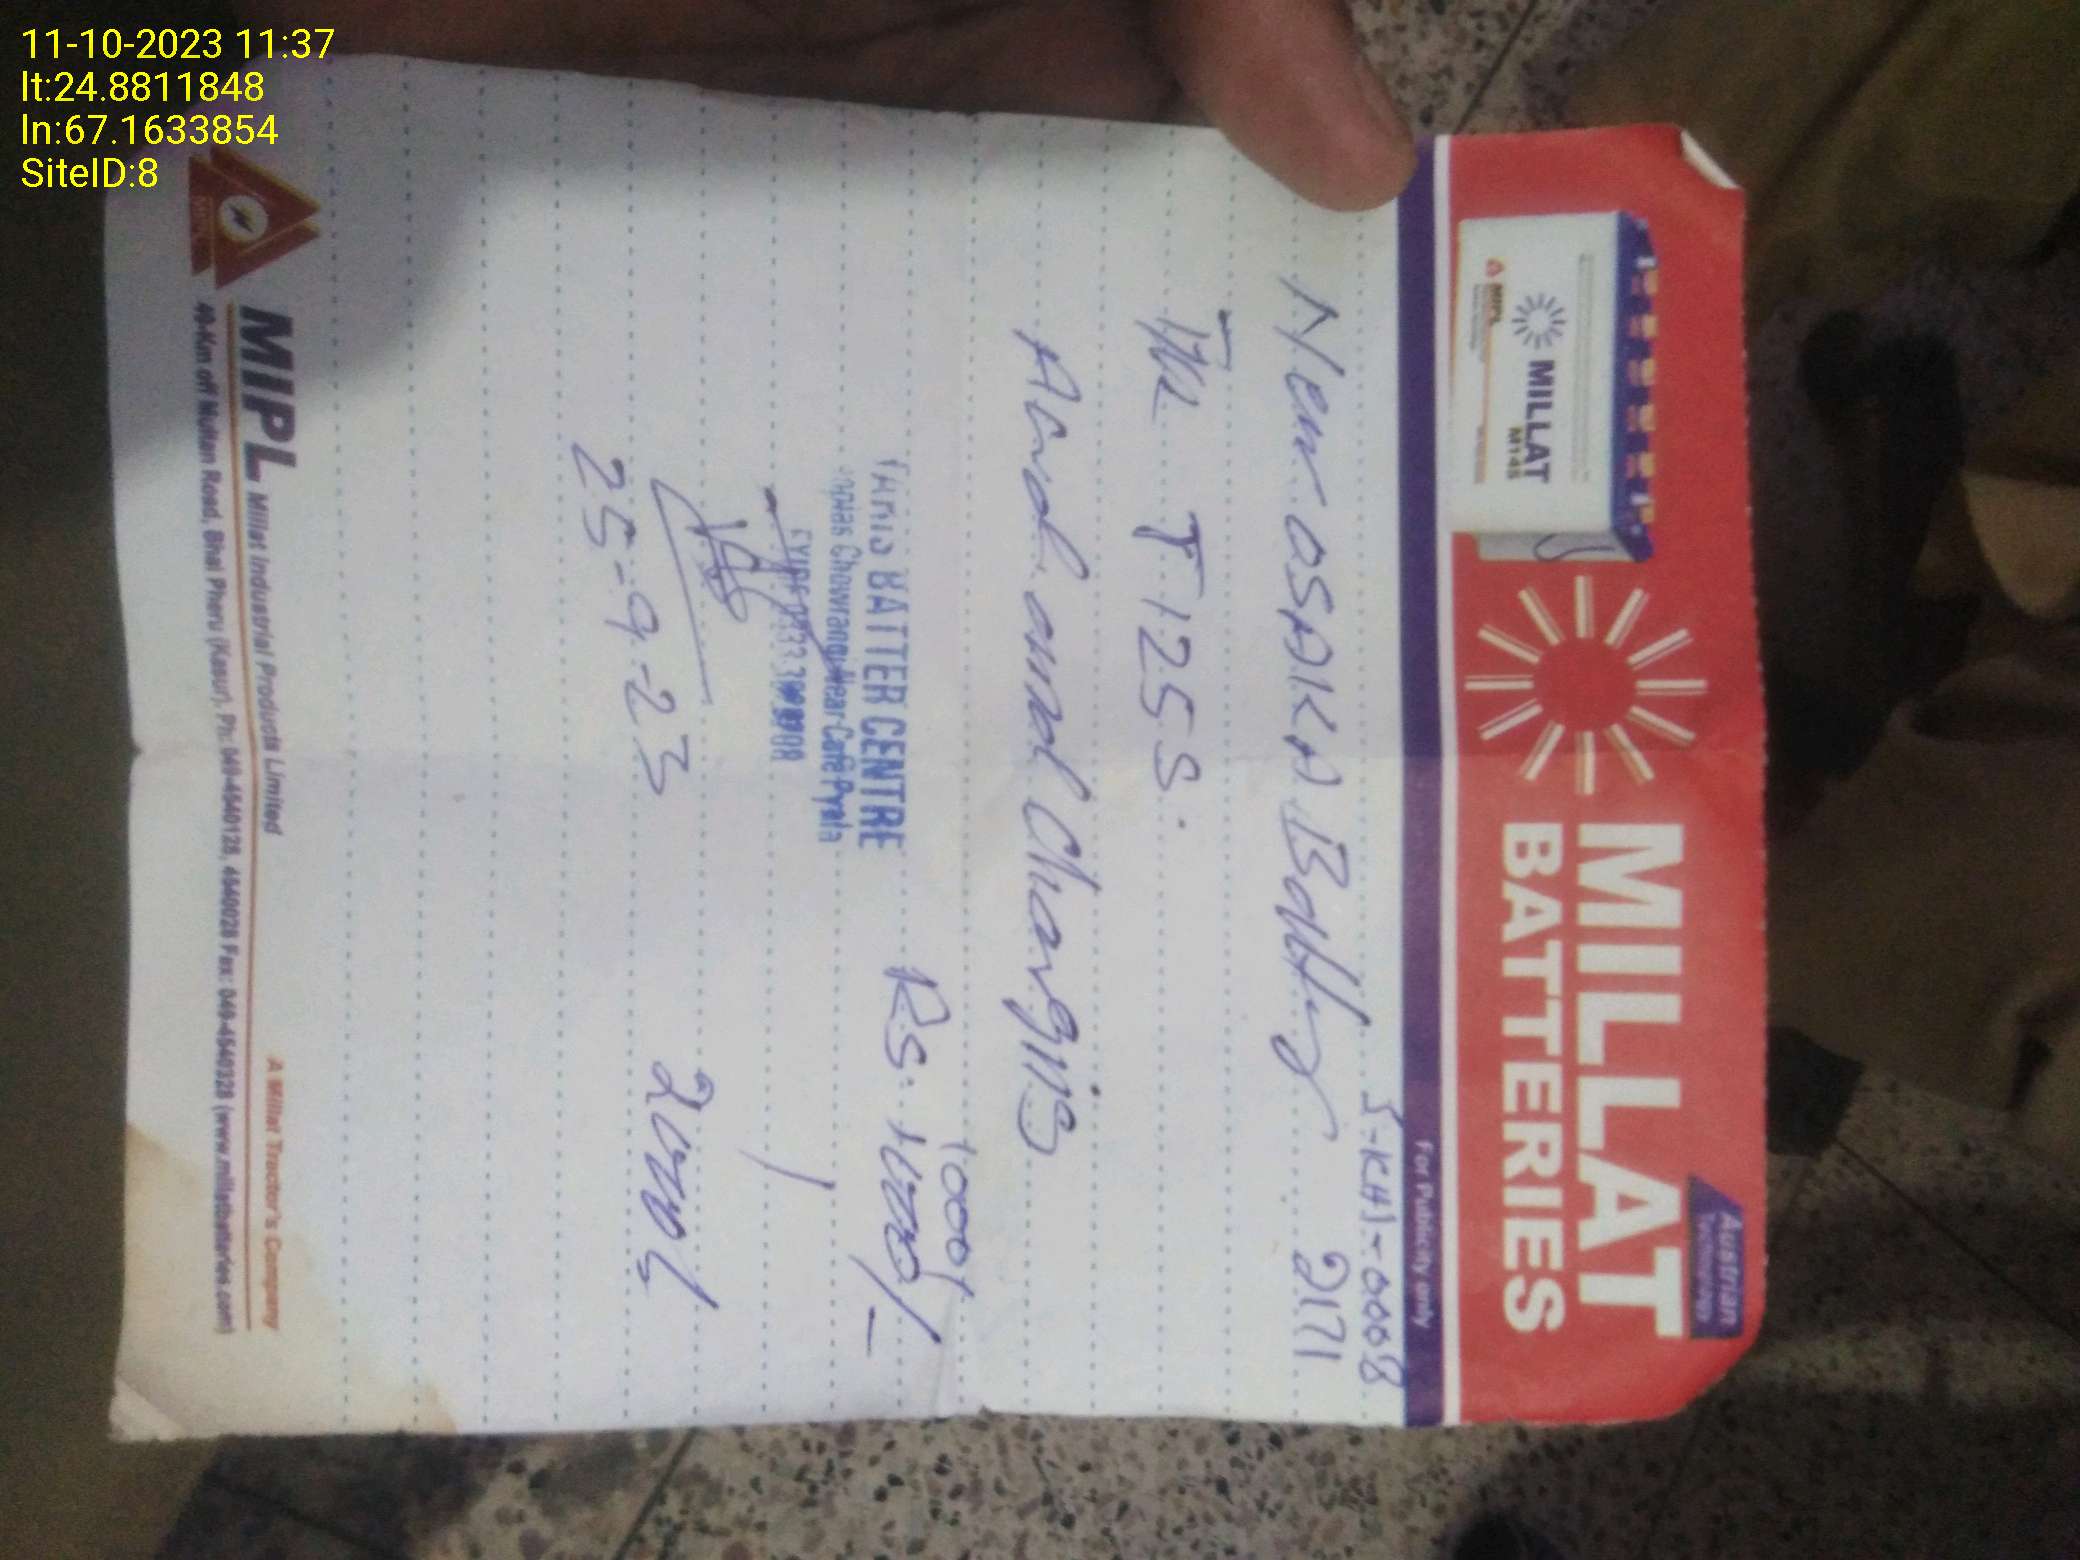 11-10-2023 11:37
lt:24.8811848
ln:67.1633854
SiteID:8
MILLAT
BATTERIES
Austrian
Technology
MIPL
MILLAT
M145
For Publicity only
S-KHI-0008
New OSAKA Battery 2171
T125S.
Acid and Charging
1000/
BATTER CENTRE Rs.
Chowrangi Near Cafe Pyala
25-9-23
MIPL Millat Industrial Products Limited A Millat Tractor's Company
49-Km off Multan Road, Bhai Pheru (Kasur). Ph: 049-4540128, 4540028 Fax: 049-4540328 (www.millatbatteries.com)